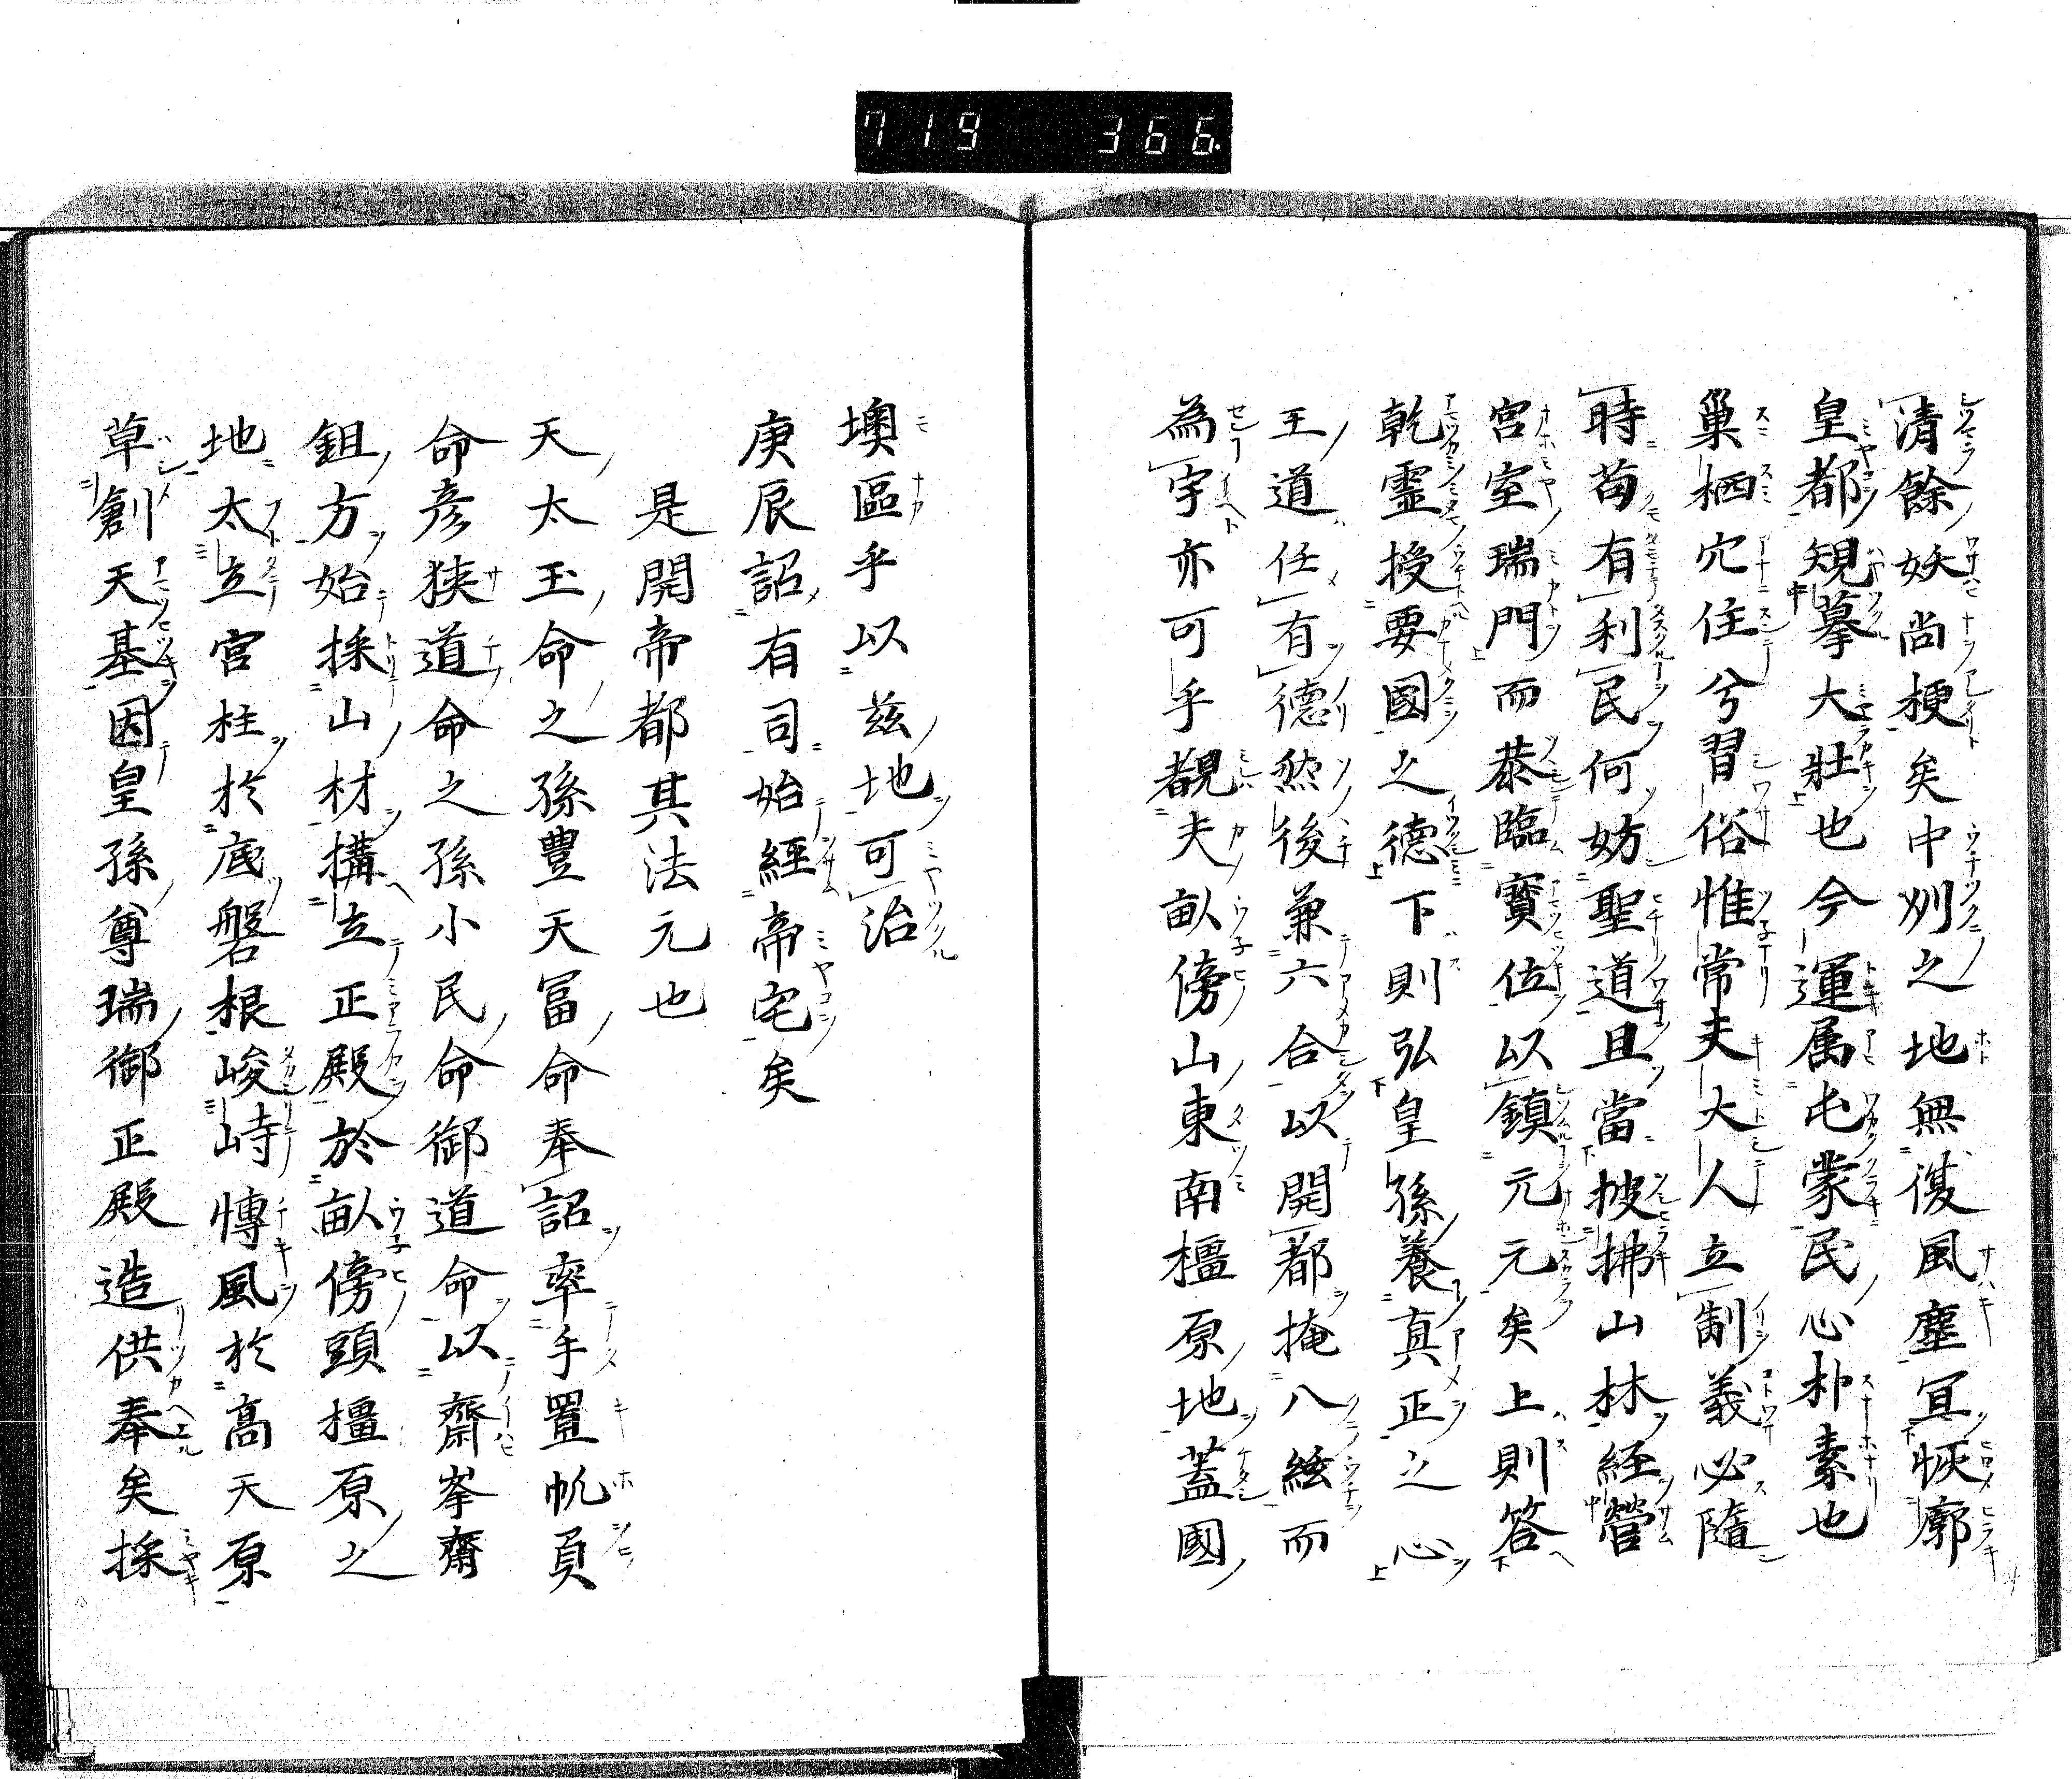 719 366
清餘妖尚梗矣中州之地無復風塵宜恢廓
皇都規摹大壯也今運属屯蒙民心朴素也
巢栖穴住兮習俗惟常夫大人立制義必隨
時苟有利民何妨聖道且當披拂山林経營
宮室瑞門而恭臨寶位以鎮元元矣上則答
乾霊授要國之德下則弘皇孫養真正之心
王道任有德然後兼六合以開都掩八紘而
為宇亦可乎覩夫畝傍山東南橿原地蓋國
墺區乎以兹地可治
庚辰詔有司始經帝宅矣
是開帝都其法元也
天太玉命之孫豊天冨命奉詔率手置帆負
命彦狭道命之孫小民命御道命以齋斧齋
鉏方始採山材搆立正殿於畝傍頭橿原之
地太立宮柱於底磐根峻峙慱風於高天原
草創天基因皇孫尊瑞御正殿造供奉矣採